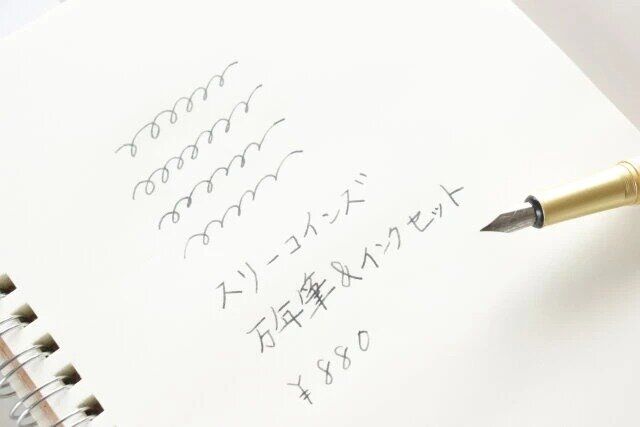 スリーコインズ
万年筆&インクセット
¥880